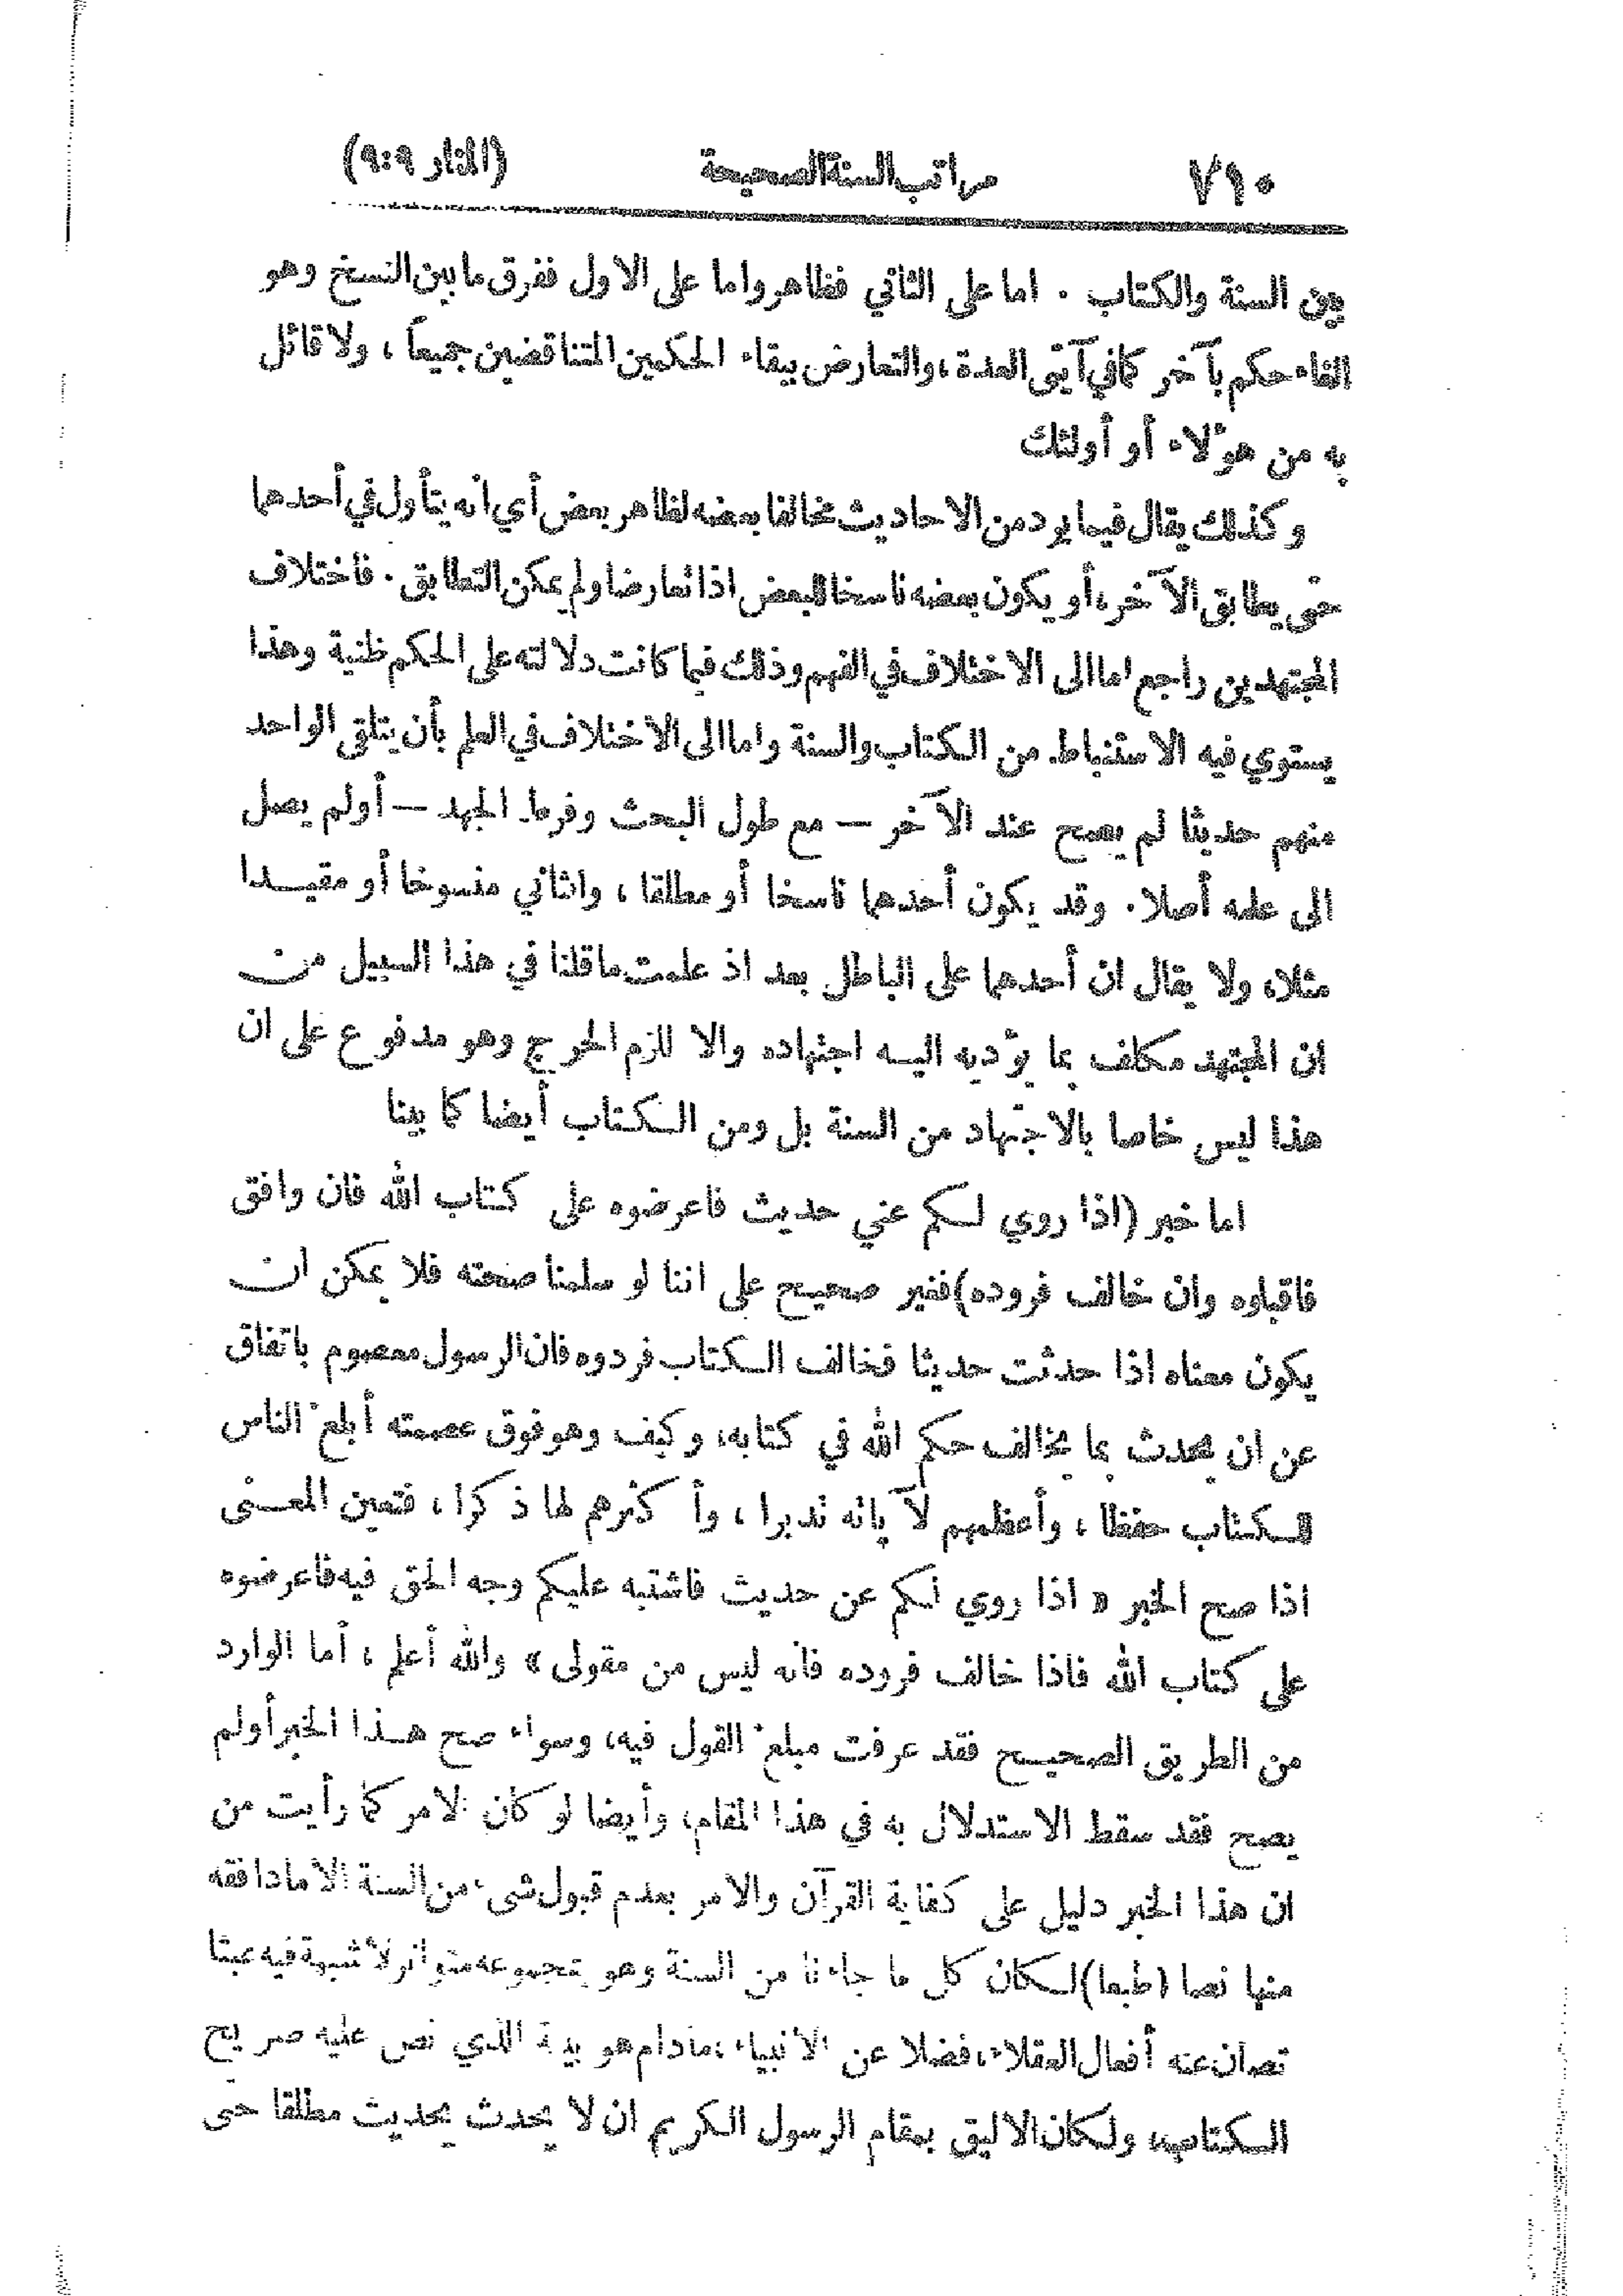 ٧١٠ مراتب السنة الصحيحة (المنار ٩:٩)
بين السنة والكتاب . اما على الثاني فظاهر واما على الاول ففرق ما بين النسخ وهو
الغاء حكم بآخر كما في آيتي العدة ، والتعارض ببقاء الحكمين المتناقضين جميعاً ، ولا قائل
به من هؤلاء أو أولئك
وكذلك يقال فيما يرد من الاحاديث مخالفا بعضه لظاهر بعض أي انه يتأول في أحدهما
حتى يطابق الآخر، أو يكون بعضه ناسخا للبعض اذا تعارضا ولم يمكن التطابق . فاختلاف
المجتهدين راجع اما الى الاختلاف في الفهم وذلك فيما كانت دلالته على الحكم ظنية وهذا
يستوي فيه الاستنباط من الكتاب والسنة واما الى الاختلاف في العلم بأن يتلقى الواحد
منهم حديثا لم يصح عند الآخر — مع طول البحث وفرط الجهد — أو لم يصل
الى علمه أصلا . وقد يكون أحدهما ناسخا أو مطلقا ، واثاني منسوخا أو مقيدا
مثلا، ولا يقال ان أحدهما على الباطل بعد اذ علمت ما قلنا في هذا السبيل من
ان المجتهد مكلف بما يؤديه اليه اجتهاده والا للزم الحرج وهو مدفوع على ان
هذا ليس خاصا بالاجتهاد من السنة بل ومن الكتاب أيضا كما بينا
اما خبر (اذا روي لكم عني حديث فاعرضوه على كتاب الله فان وافق
فاقبلوه وان خالف فردوه) فغير صحيح على اننا لو سلمنا صحته فلا يمكن ان
يكون معناه اذا حدثت حديثا فخالف الكتاب فردوه فان الرسول معصوم باتفاق
عن ان يحدث بما يخالف حكم الله في كتابه، وكيف وهو فوق عصمته أبلغ الناس
للكتاب حفظا ، وأعظمهم لآياته تدبرا ، وأكثرهم لها ذكرا ، فتعين المعنى
اذا صح الخبر « اذا روي لكم عن حديث فاشتبه عليكم وجه الحق فيه فاعرضوه
على كتاب الله فاذا خالف فردوه فانه ليس من مقولى » والله أعلم ، أما الوارد
من الطريق الصحيح فقد عرفت مبلغ القول فيه، وسواء صح هذا الخبر أو لم
يصح فقد سقط الاستدلال به في هذا المقام، وأيضا لو كان الامر كما رأيت من
ان هذا الخبر دليل على كفاية القرآن والامر بعدم قبول شيء من السنة الا ما دافقه
منها نصا (طبعا) لكان كل ما جاءنا من السنة وهو بمجموعه متواتر لا شبهة فيه عبثا
تصان عنه أفعال العقلاء، فضلا عن الانبياء، مادام هو الذي نص عليه صريح
الكتاب، ولكان الاليق بمقام الرسول الكريم ان لا يحدث بحديث مطلقا حتى